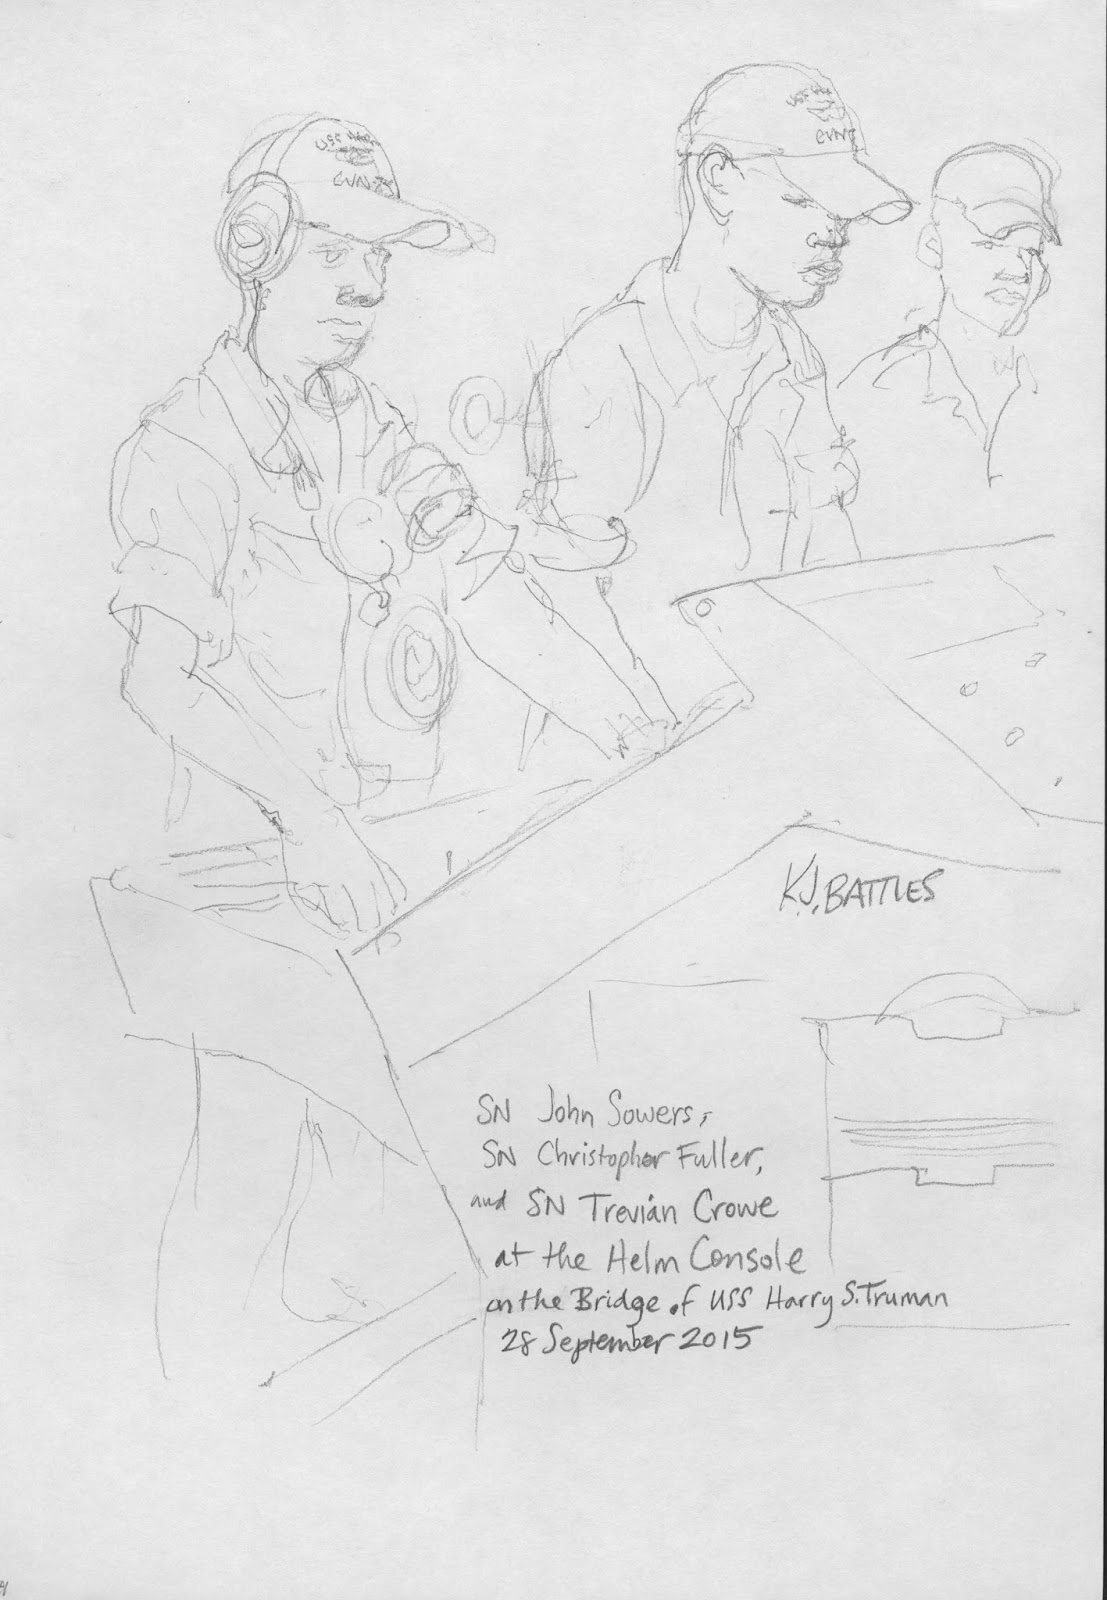 CVN-75
CVN7
K.J. BATTLES
SN John Sowers,
SN Christopher Fuller,
and SN Trevian Crowe
at the Helm Console
on the Bridge of USS Harry S. Truman
28 September 2015